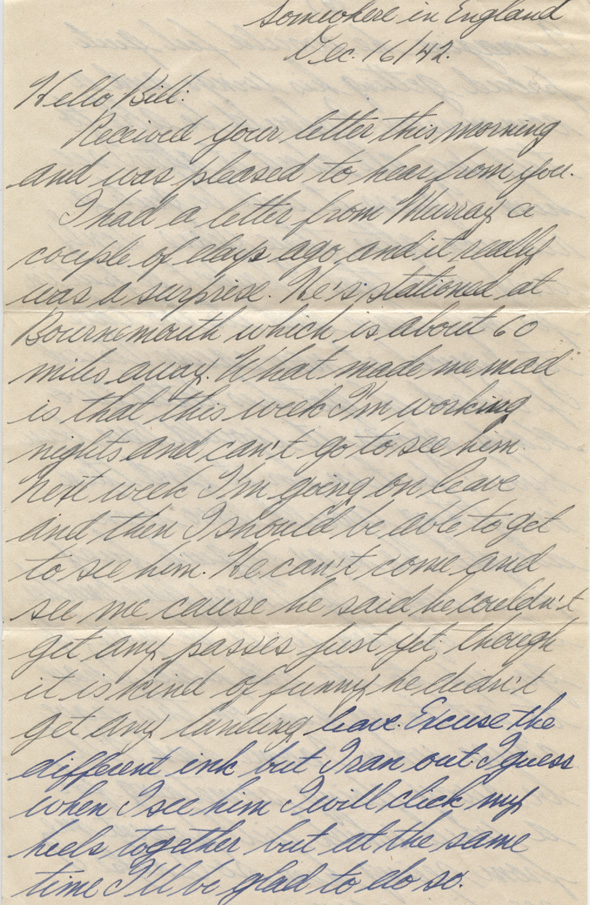 Somewhere in England
Dec. 16/42.
Hello Bill:
Received your letter this morning
and was pleased to hear from you.
I had a letter from Murray a
couple of days ago and it really
was a surprise. He's stationed at
Bournemouth which is about 60
miles away. What made me mad
is that this week I'm working
nights and can't go to see him.
Next week I'm going on leave
and then I should be able to get
to see him. He can't come and
see me cause he said he couldn't
get any passes just yet, though
it is kind of funny he didn't
get any landing leave. Excuse the
different ink but I ran out. I guess
when I see him I will click my
heels together but at the same
time I'll be glad to do so.